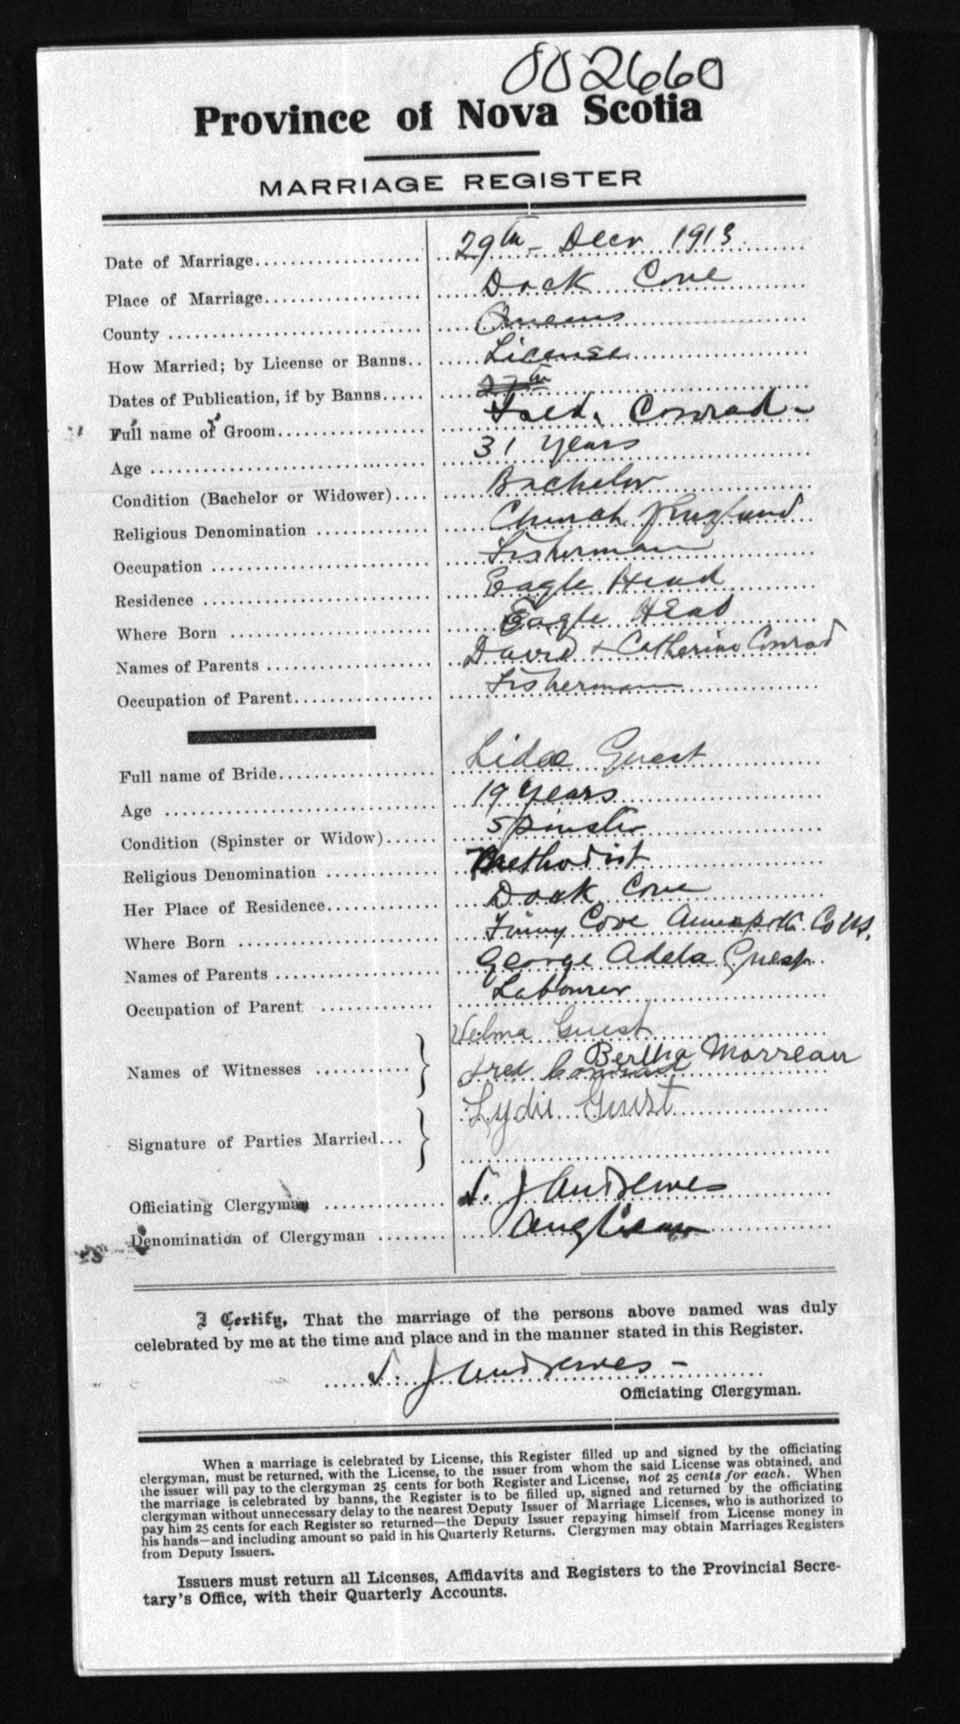 002660
Province of Nova Scotia
MARRIAGE REGISTER
Date of Marriage 29th Decr 1913
Place of Marriage Dock Cove
County Queens
How Married; by License or Banns License
Dates of Publication, if by Banns 27th
Full name of Groom Fred. Conrad
Age 31 years
Condition (Bachelor or Widower) Bachelor
Religious Denomination Church England
Occupation Fisherman
Residence Eagle Head
Where Born Eagle Head
Names of Parents David + Catherine Conrad
Occupation of Parent Fisherman
Full name of Bride Guest
Age 19 years
Condition (Spinster or Widow) Spinster
Religious Denomination Methodist
Her Place of Residence Dock Cove
Where Born Cove Annapolis Co NS.
Names of Parents George Adela Guest
Occupation of Parent Labourer
Velma Guest
Names of Witnesses Bertha Morreau
Fred Conrad
Lydie Guest
Signature of Parties Married
Officiating Clergyman J Andrewes
Denomination of Clergyman Anglican
I Certify, That the marriage of the persons above named was duly
celebrated by me at the time and place and in the manner stated in this Register.
J Andrewes
Officiating Clergyman.
When a marriage is celebrated by License, this Register filled up and signed by the officiating
clergyman, must be returned, with the License, to the issuer from whom the said License was obtained, and
the issuer will pay to the clergyman 25 cents for both Register and License, not 25 cents for each. When
the marriage is celebrated by banns, the Register is to be filled up, signed and returned by the officiating
clergyman without unnecessary delay to the nearest Deputy Issuer of Marriage Licenses, who is authorized to
pay him 25 cents for each Register so returned—the Deputy Issuer repaying himself from License money in
his hands—and including amount so paid in his Quarterly Returns. Clergymen may obtain Marriages Registers
from Deputy Issuers.
Issuers must return all Licenses, Affidavits and Registers to the Provincial Secre-
tary's Office, with their Quarterly Accounts.